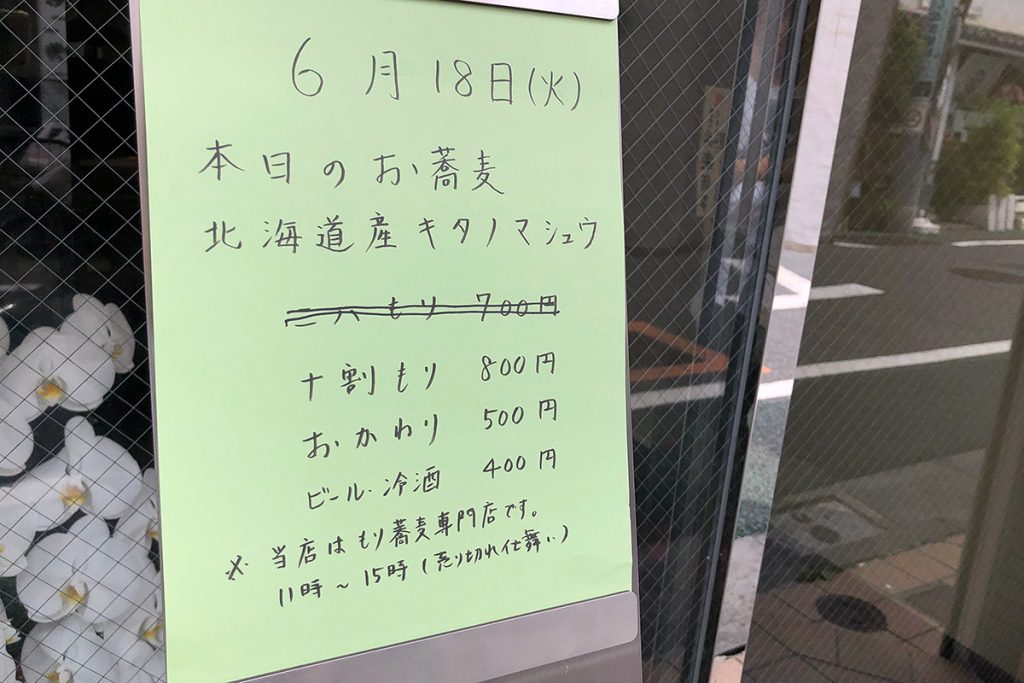 6月18日(火)
本日のお蕎麦
北海道産キタノマシュウ
二八もり 700円
十割もり 800円
おかわり 500円
ビール・冷酒 400円
※当店はもり蕎麦専門店です。
11時～15時(売り切れ仕舞い)